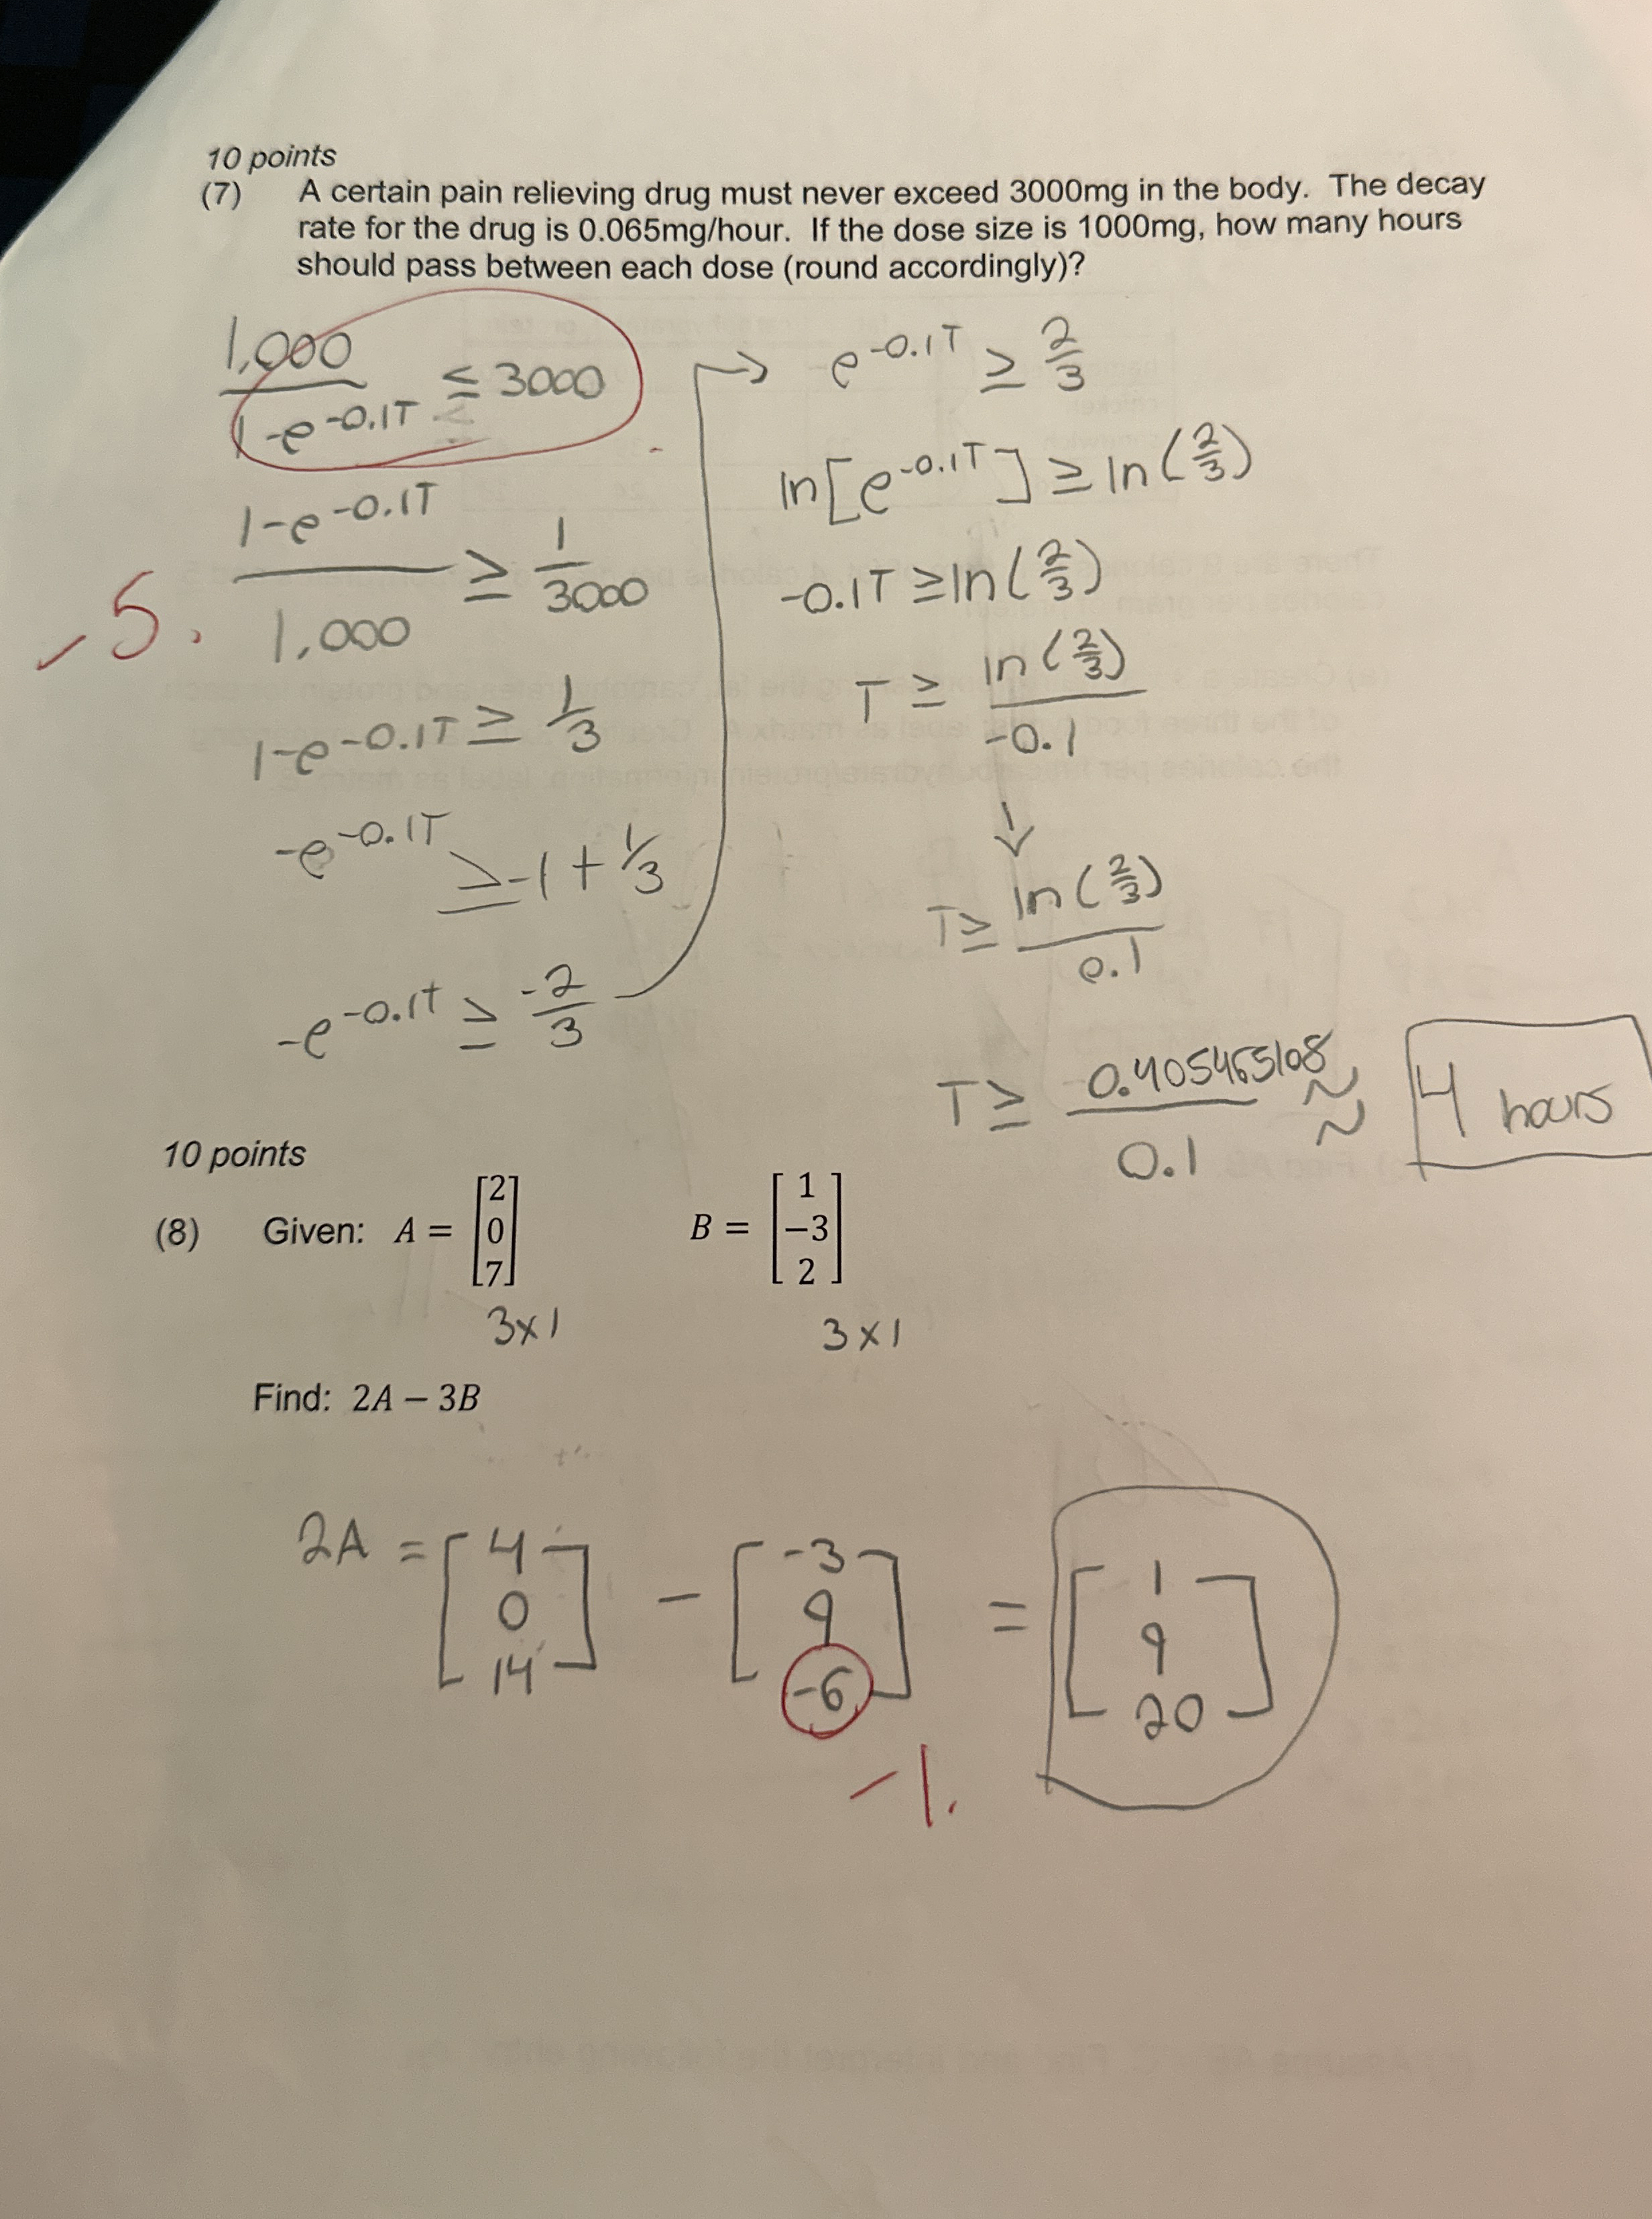 10 points
(7) A certain pain relieving drug must never exceed 3000mg in the body. The decay
rate for the drug is 0.065mg/hour. If the dose size is 1000mg, how many hours
should pass between each dose (round accordingly)?
1,000 / 1-e^-0.1T ≤ 3000
1-e^-0.1T / 1,000 ≥ 1/3000
-5.
1-e^-0.1T ≥ 1/3
-e^-0.1T ≥ -1 + 1/3
-e^-0.1t ≥ -2/3
→ e^-0.1T ≥ 2/3
ln[e^-0.1T] ≥ ln(2/3)
-0.1T ≥ ln(2/3)
T ≥ ln(2/3) / -0.1
↓
T ≥ ln(2/3) / 0.1
T ≥ 0.405465108 / 0.1 ≈ 4 hours
10 points
(8) Given: A = [2 0 7] B = [1 −3 2]
3x1 3x1
Find: 2A − 3B
2A = [4 0 14] - [-3 9 -6] = [1 9 20]
-1.